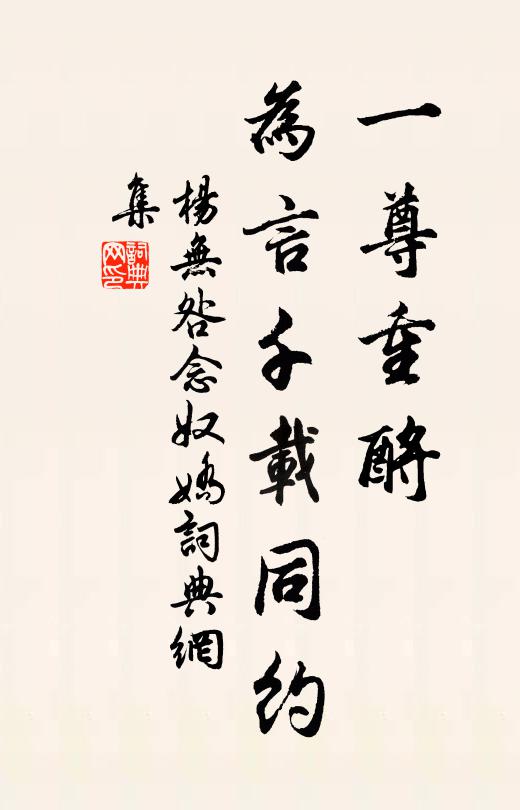 一尊重酹
為言千載同約
楊無咎念奴嬌詞典網
集
詞典网印